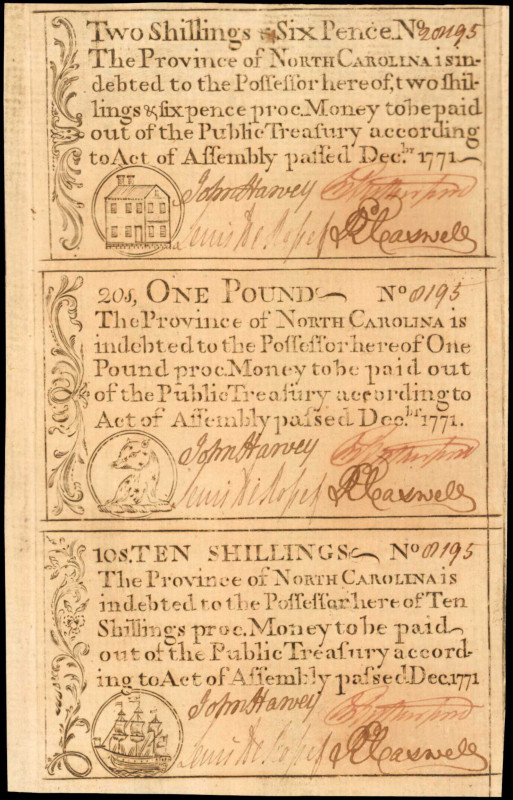 Two Shillings & Six Pence. No 8195
The Province of NORTH CAROLINA is in-
debted to the Possessor hereof, two shil-
lings & six pence proc. Money to be paid
out of the Public Treasury according
to Act of Assembly passed Dec.br 1771
John Harvey
Lewis De Rosset
R Caswell
20s, ONE POUND No 8195
The Province of NORTH CAROLINA is
indebted to the Possessor hereof One
Pound proc. Money to be paid out
of the Public Treasury according to
Act of Assembly passed Dec.br 1771.
John Harvey
Lewis De Rosset
R Caswell
10s. TEN SHILLINGS No 8195
The Province of NORTH CAROLINA is
indebted to the Possessor here of Ten
Shillings proc. Money to be paid
out of the Public Treasury accord-
ing to Act of Assembly passed Dec. 1771
John Harvey
Lewis De Rosset
R Caswell